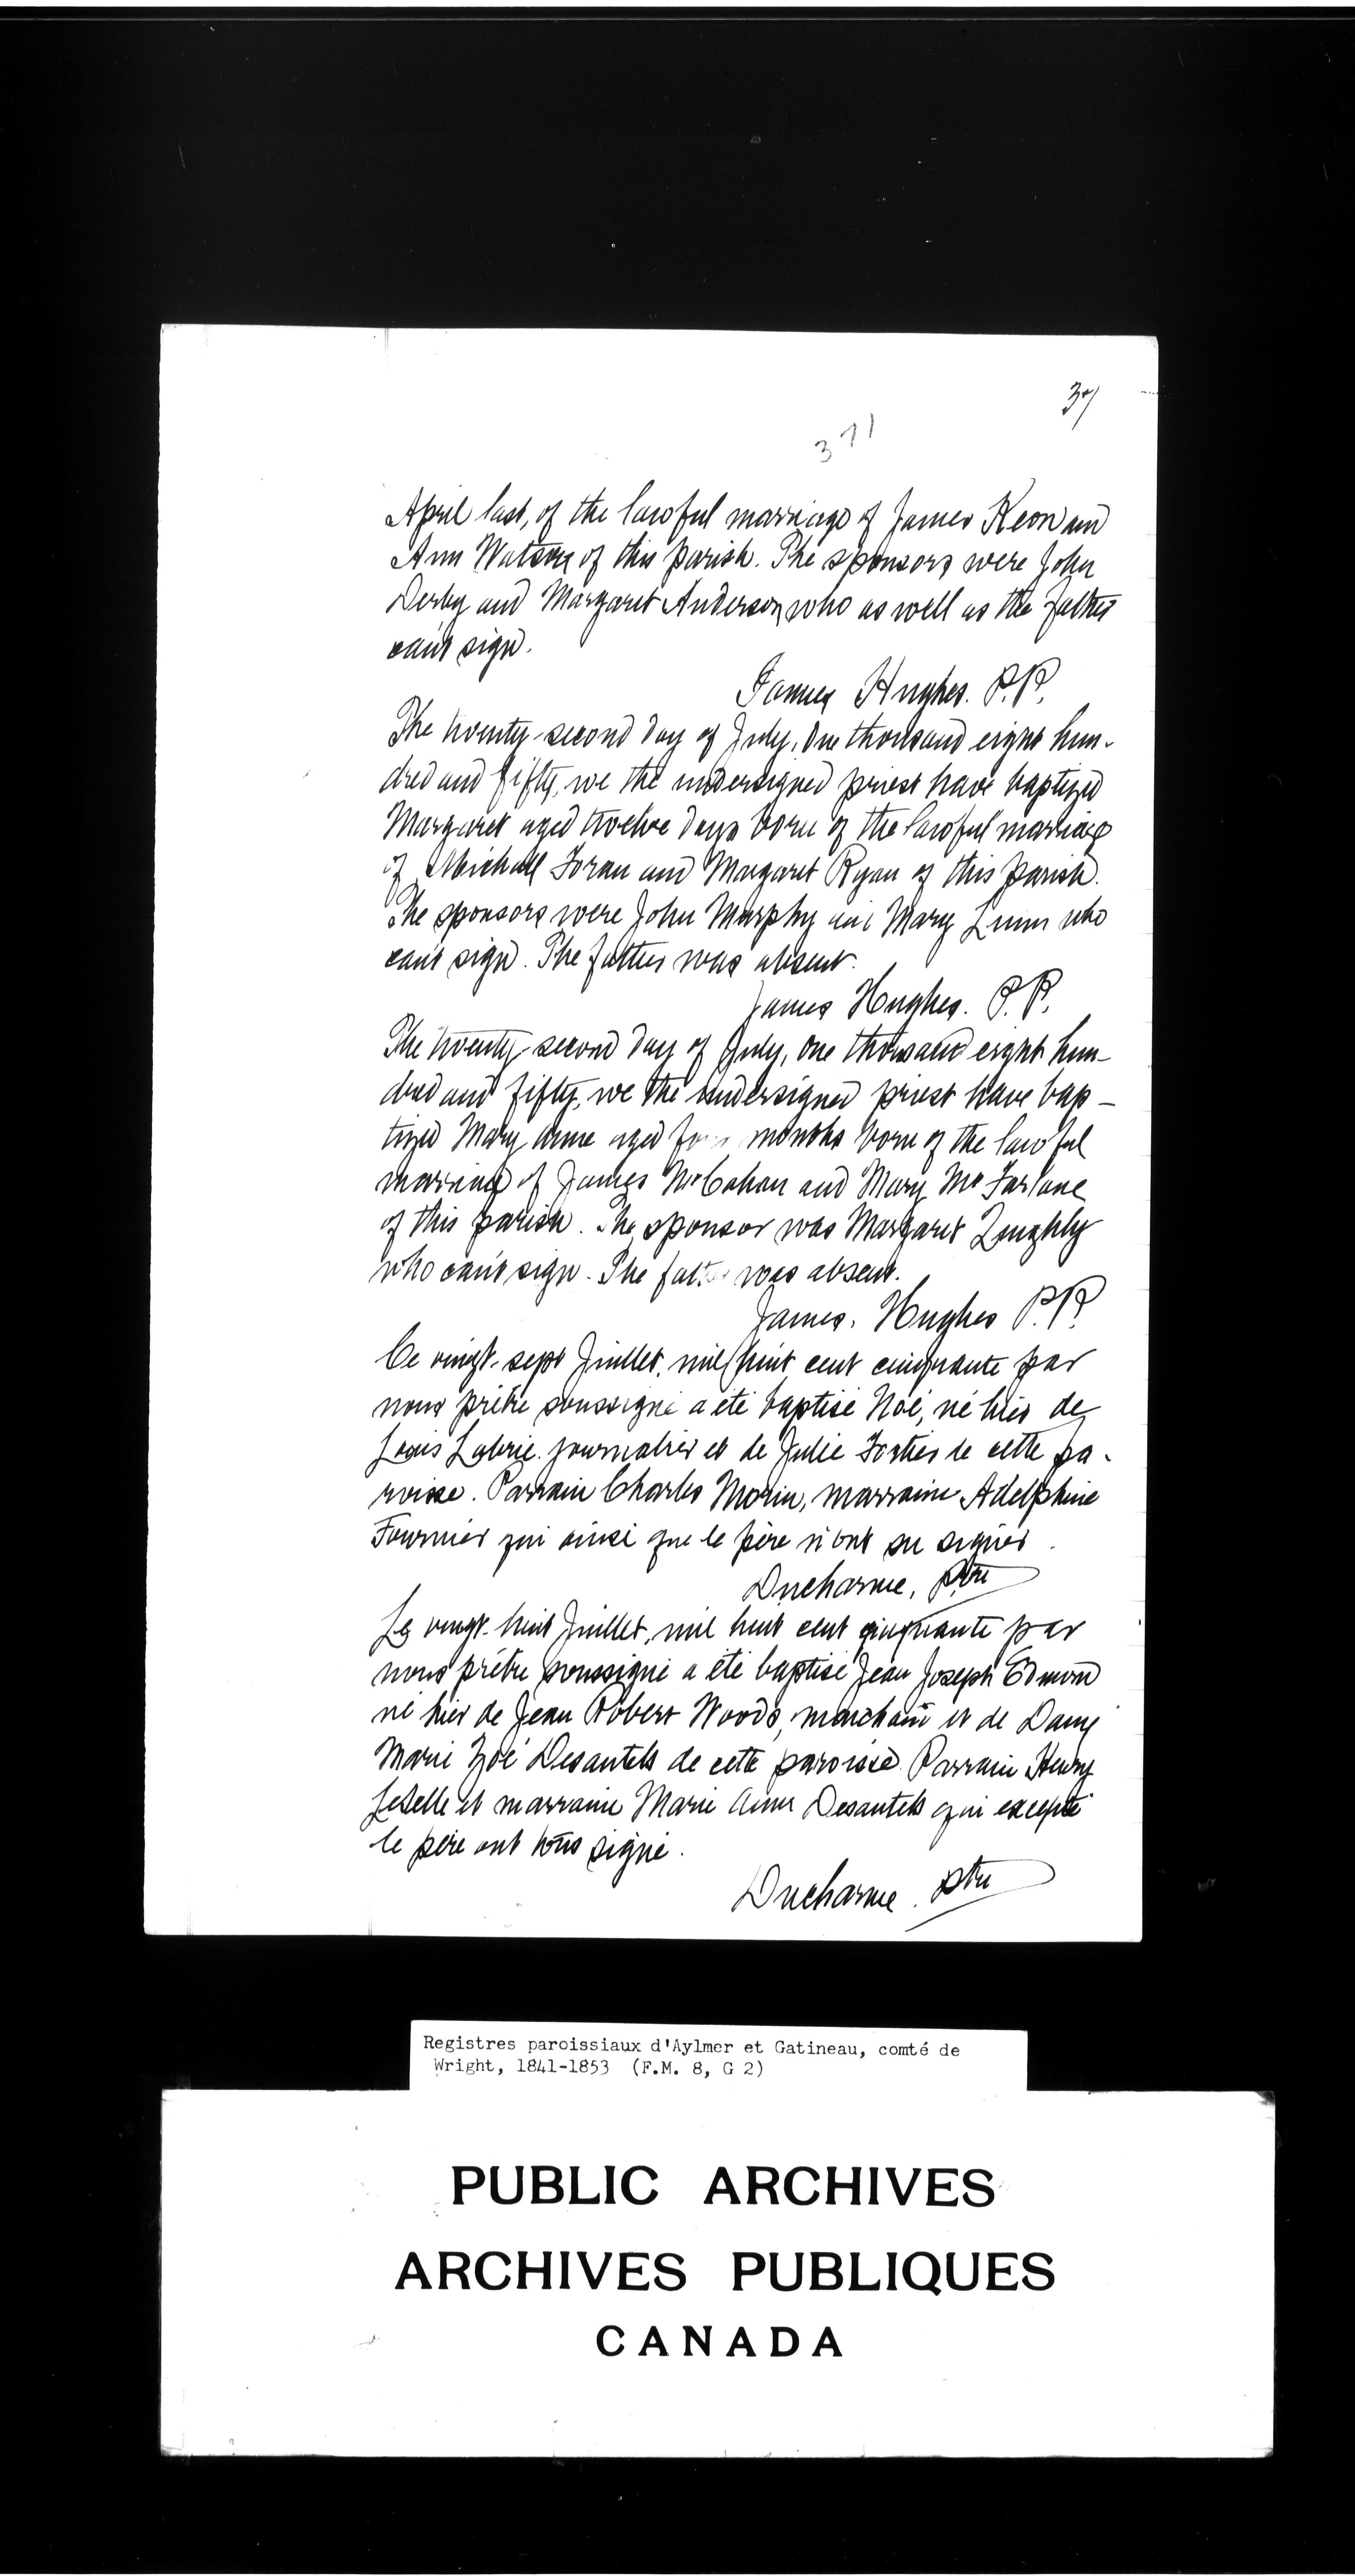 37
371
April last, of the lawful marriage of James Keon and
Ann Watson of this parish. The sponsors were John
Derby and Margaret Anderson who as well as the father
can't sign.
James Hughes. P.P.
The twenty-second day of July, one thousand eight hun-
dred and fifty, we the undersigned priest have baptized
Margaret aged twelve days born of the lawful marriage
of Michall Foran and Margaret Ryan of this parish.
The sponsors were John Murphy and Mary who
can't sign. The father was absent.
James Hughes. P.P.
The twenty-second day of July, one thousand eight hun-
dred and fifty, we the undersigned priest have bap-
tized Mary Anne aged months born of the lawful
marriage of James McCahan and Mary McFarlane
of this parish. The sponsor was Margaret
who can't sign. The father was absent.
James. Hughes P.P.
Ce vingt-sept Juillet, mil huit cent cinquante par
nous prêtre soussigné a été baptisé Noé, né hier de
Louis Labrie journalier et de Julie Fortier de cette pa-
roisse. Parrain Charles Morin, marraine Adelphine
Fournier qui ainsi que le père n'ont su signer.
Ducharme, Ptre
Le vingt-huit Juillet, mil huit cent cinquante par
nous prêtre soussigné a été baptisé Jean Joseph Edmond
né hier de Jean Robert Woods, marchand et de Dame
Marie Zoé Desautels de cette paroisse. Parrain Henry
LeBelle et marraine Marie Desautels qui excepté
le père ont tous signé.
Ducharme. Ptre
Registres paroissiaux d'Aylmer et Gatineau, comté de
Wright, 1841-1853 (F.M. 8, G 2)
PUBLIC ARCHIVES
ARCHIVES PUBLIQUES
CANADA